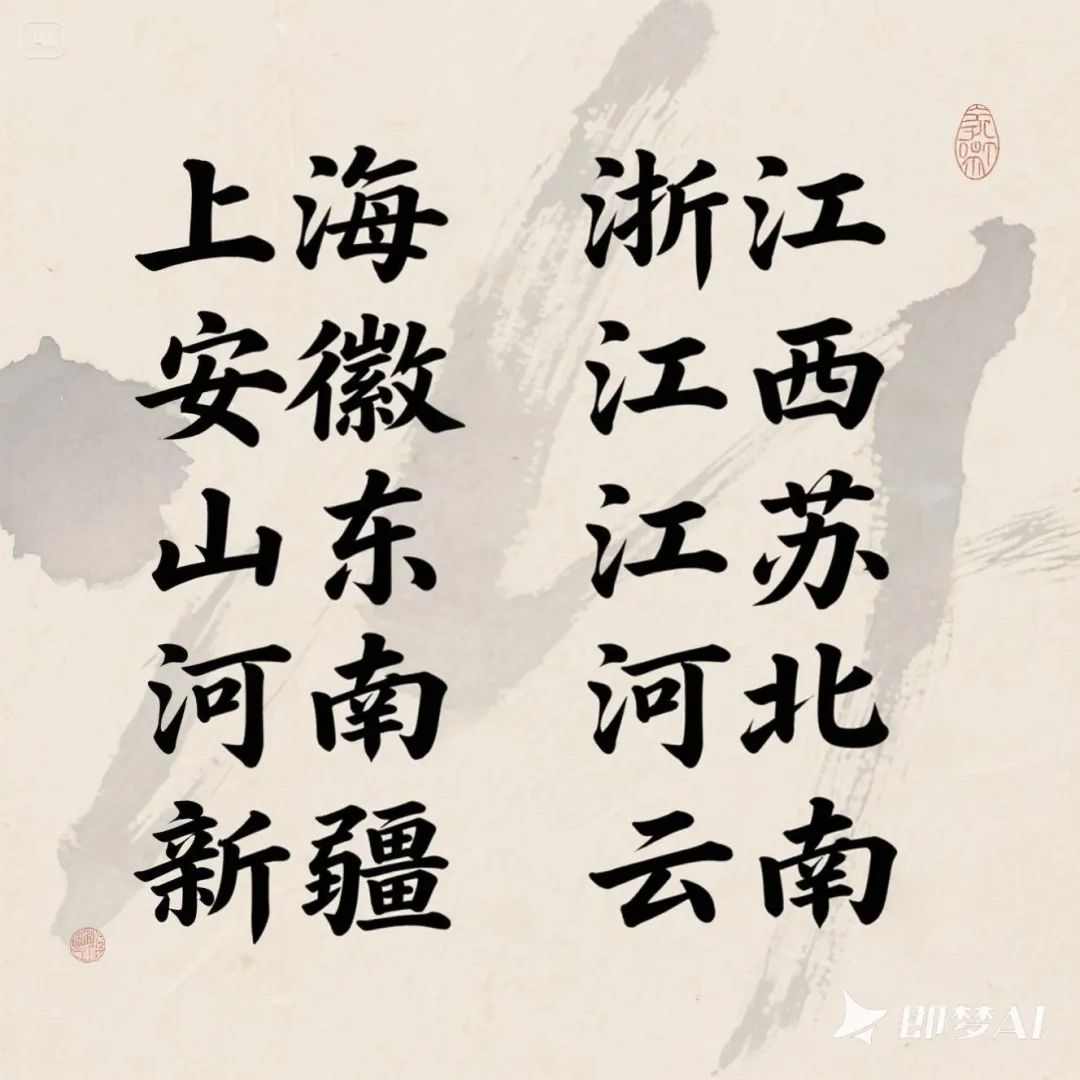 上海 浙江
安徽 江西
山东 江苏
河南 河北
新疆 云南
即梦AI